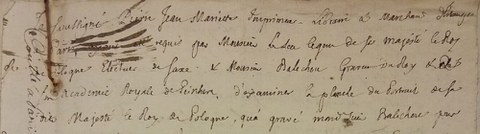 soussigné Pierre Jean Mariette Imprimeur Libraire & Marchand d'Estampes
requis par Monsieur Le Leu Agent de sa majesté le Roy
de Pologne Electeur de Saxe, & Monsieur Balechou Graveur du Roy & de
Academie Royale de Peinture, d'examiner la planche du Portrait de sa
Majesté le Roy de Pologne, qu'a gravé mondit sieur Balechou par